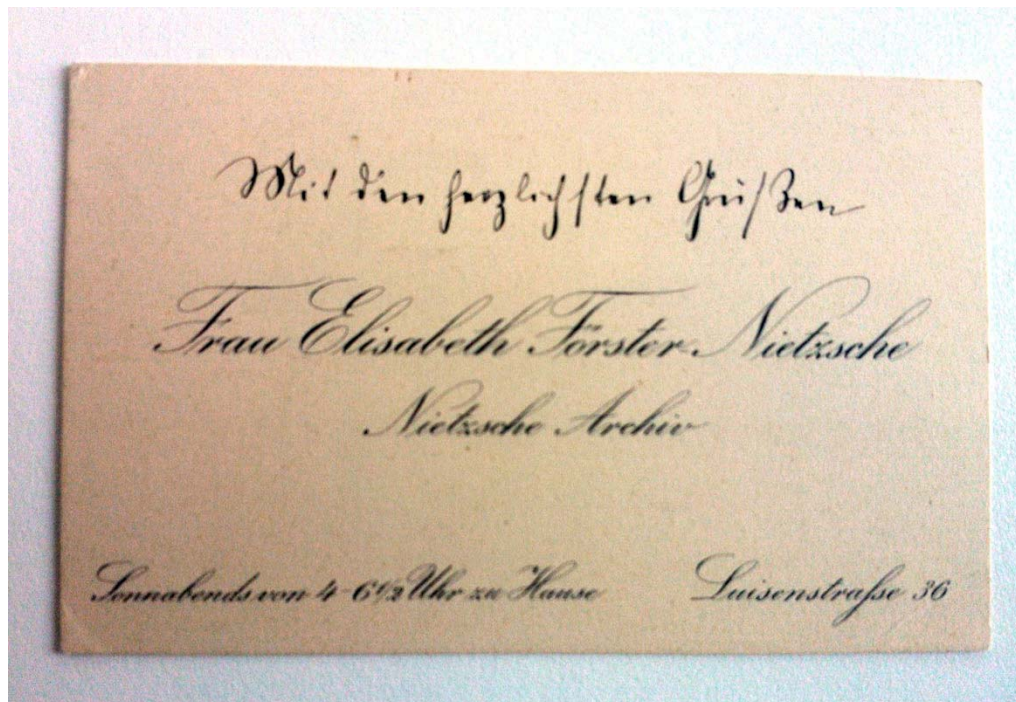 Mit den herzlichsten Grüßen
Frau Elisabeth Förster-Nietzsche
Nietzsche Archiv
Sonnabends von 4-6 1/2 Uhr zu Hause Luisenstraſse 36